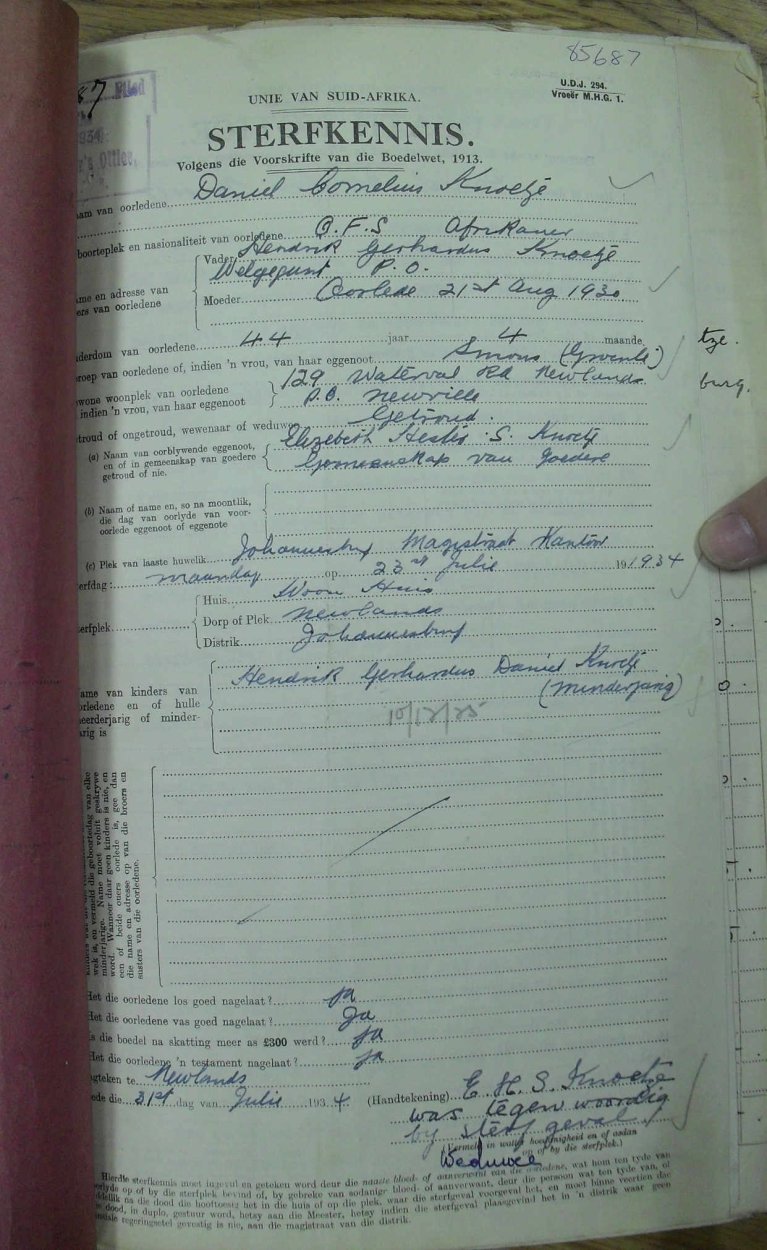 85687
U.D.J. 294.
Vroeër M.H.G. 1.
87 Filed
1934
UNIE VAN SUID-AFRIKA.
STERFKENNIS.
Volgens die Voorskrifte van die Boedelwet, 1913.
am van oorledene Daniel Cornelius Knoetje
boorteplek en nasionaliteit van oorledene O.F.S Afrikaner
Vader Hendrik Gerhardus Knoetje
me en adresse van
ers van oorledene
Welgegunt P.O.
Moeder Oorlede 21st Aug 1930
derdom van oorledene 44 jaar 4 maande
roep van oorledene of, indien 'n vrou, van haar eggenoot
wone woonplek van oorledene
indien 'n vrou, van haar eggenoot
129 Waterval Rd Newlands
P.O. Newville
troud of ongetroud, wewenaar of weduwee Getroud.
(a) Naam van oorblywende eggenoot,
en of in gemeenskap van goedere
getroud of nie.
Elizabeth Hester S. Knoetje
Gemeenskap van Goedere
(b) Naam of name en, so na moontlik,
die dag van oorlyde van voor-
oorlede eggenoot of eggenote
(c) Plek van laaste huwelik Johannesburg Magistraat Kantoor
erfdag: maandag op 23 Julie 191934
erfplek
Huis Woon Huis
Dorp of Plek Newlands
Distrik Johannesburg
ame van kinders van
orledene en of hulle
eerderjarig of minder-
arig is
Hendrik Gerhardus Daniel Knoetje
(Minderjarig)
10/12/25
wek is, en vermeld die geboortedag van elke
minderjarige. Name moet voluit geskrywe
word. Wanneer daar geen kinders is nie, en
een of beide ouers oorlede is, gee dan
die name en adresse op van die broers en
susters van die oorledene.
Het die oorledene los goed nagelaat? Ja
Het die oorledene vas goed nagelaat? Ja
s die boedel na skatting meer as £300 werd? Ja
Het die oorledene 'n testament nagelaat? Ja
gteken te Newlands
ede die 31st dag van Julie 1934
(Handtekening) E H. S. Knoetje
was tegenwoordig
by sterfgeval
(Vermeld in watter hoedanigheid en of aodan
of by die sterfplek.)
Weduwee
Hierdie sterfkennis moet ingevul en geteken word deur die naaste bloed- of aanverwant van die oorledene, wat hom ten tyde van
orlyde op of by die sterfplek bevind of, by gebreke van sodanige bloed- of aanverwant, deur die persoon wat ten tyde van, of
ddellik na die dood die hooftoesig het in die huis of op die plek, waar die sterfgeval voorgeval het, en moet binne veertien die
e dood, in duplo, gestuur word, hetsy aan die Meester, hetsy indien die sterfgeval plaasgevind het in 'n distrik waar geen
regeringsetel gevestig is nie, aan die magistraat van die distrik.
burg.